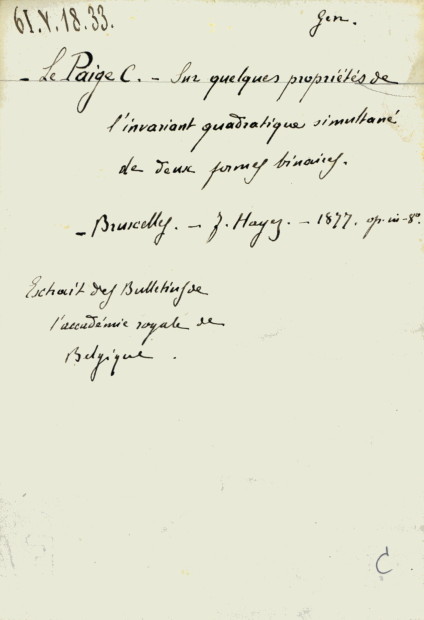 61.V.18.33.
Gen.
- Le Paige C. - Sur quelques propriétés de
l'invariant quadratique simultané
de deux formes binaires.
- Bruxelles. - F. Hayez. - 1877. op. in-8º.
Extrait des Bulletins de
l'accadémie royale de
Belgique.
C